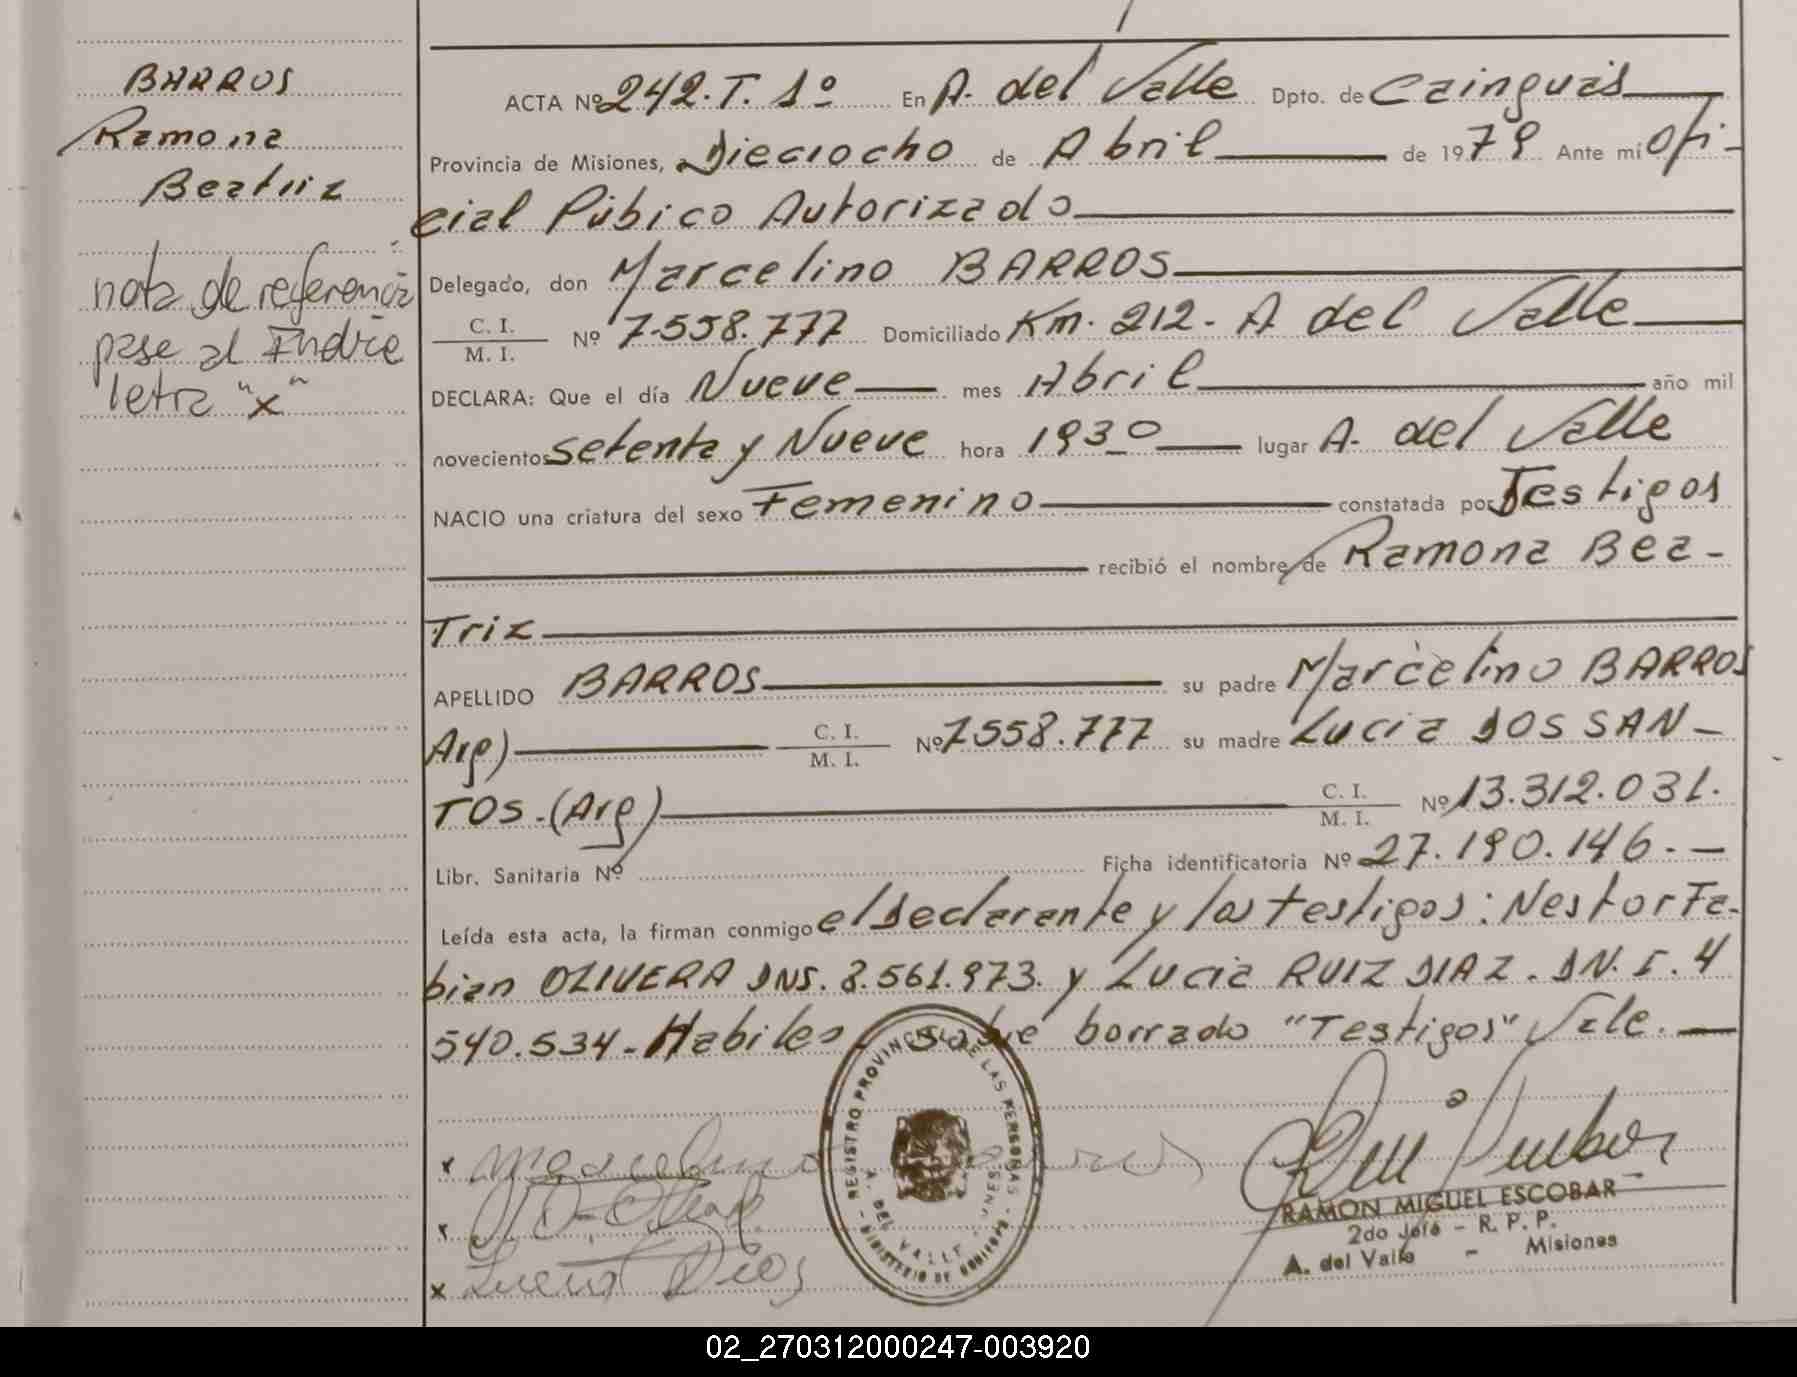 BARROS
Ramona
Beatriz
nota de referencia
pase al Indice
letra "x"
ACTA Nº 242. T. 1º En A. del Valle Dpto. de Cainguás
Provincia de Misiones, Dieciocho de Abril de 1979 Ante mí Ofi-
cial Púbico Autorizado
Delegado, don Marcelino BARROS
C. I. / M. I. Nº 7.558.777 Domiciliado Km. 212. A del Valle
DECLARA: Que el día Nueve mes Abril año mil
novecientos setenta y Nueve hora 1930 lugar A. del Valle
NACIO una criatura del sexo Femenino constatada por Testigos
recibió el nombre de Ramona Bea-
Triz
APELLIDO BARROS su padre Marcelino BARROS
Arg) C. I. / M. I. Nº 7558.777 su madre Lucia DOS SAN-
TOS.-(Arg) C. I. / M. I. Nº 13.312.031.
Libr. Sanitaria Nº Ficha identificatoria Nº 27.190.146.-
Leída esta acta, la firman conmigo el declarante y los testigos: Nestor Fa-
bian OLIVERA DNS. 8.561.973. y Lucia RUIZ DIAZ. DN.I. 4
540.534- Habiles sobre borrado "Testigos" Vale.
REGISTRO PROVINCIAL DE LAS PERSONAS
A. DEL VALLE - MISIONES
MINISTERIO DE GOBIERNO
RAMON MIGUEL ESCOBAR
2do Jefe - R. P. P.
A. del Valle - Misiones
02_270312000247-003920